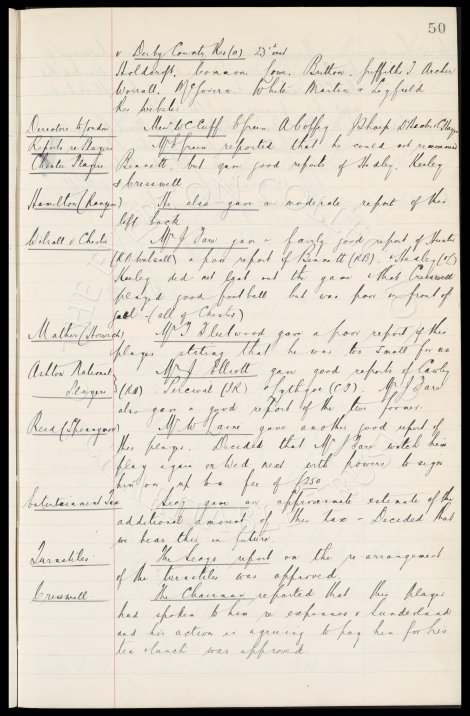 50
v Derby County Res (a) 23rd inst
Holdcroft. Common Lowe. Britton. Griffiths T. Archer
Worrall. McGovern. White Martin & Lyfield
Res Webster
Directors to London
Messrs W Cuff E Green A Coffey J Sharp D Kirkwood
Reports re Players
Mr E Green reported that he could not recommend
Chester Players
Bennett but gave good reports of Hadley, Keeley
& Cresswell
Hamilton (Rangers)
He also gave a moderate report of this
left back
Walsall v Chester
Mr J Fare gave a fairly good report of Hunter
(RB Walsall) a poor report of Bennett (RB). & Hadley (
Keeley did not last out the game & that Cresswell
played good football but was poor in front of
goal - (all of Chester)
Mather (Horwich)
Mr T Fleetwood gave a poor report of this
player stating that he was too small for us
Ashton National
Players
Mr J Elliott gave good reports of
(RB) Percival (IR) & Lythgoe (CF). Mr J Fare
also gave a good report of the two former.
Reid (Spennymoor)
Mr W gave another good report of
this player. Decided that Mr J Fare watch him
play again on Wed next with powers to sign
him on up to a fee of £250
Entertainment Tax
Secy gave an approximate estimate of the
additional amount of this tax & Decided that
we bear this in future.
Turnstiles
The Secys report on the re-arrangement
of the turnstiles was approved.
Cresswell
The Chairman reported that this player
had spoken to him re expenses & Sunderland
and his action in agreeing to pay him for his
tea & lunch was approved.